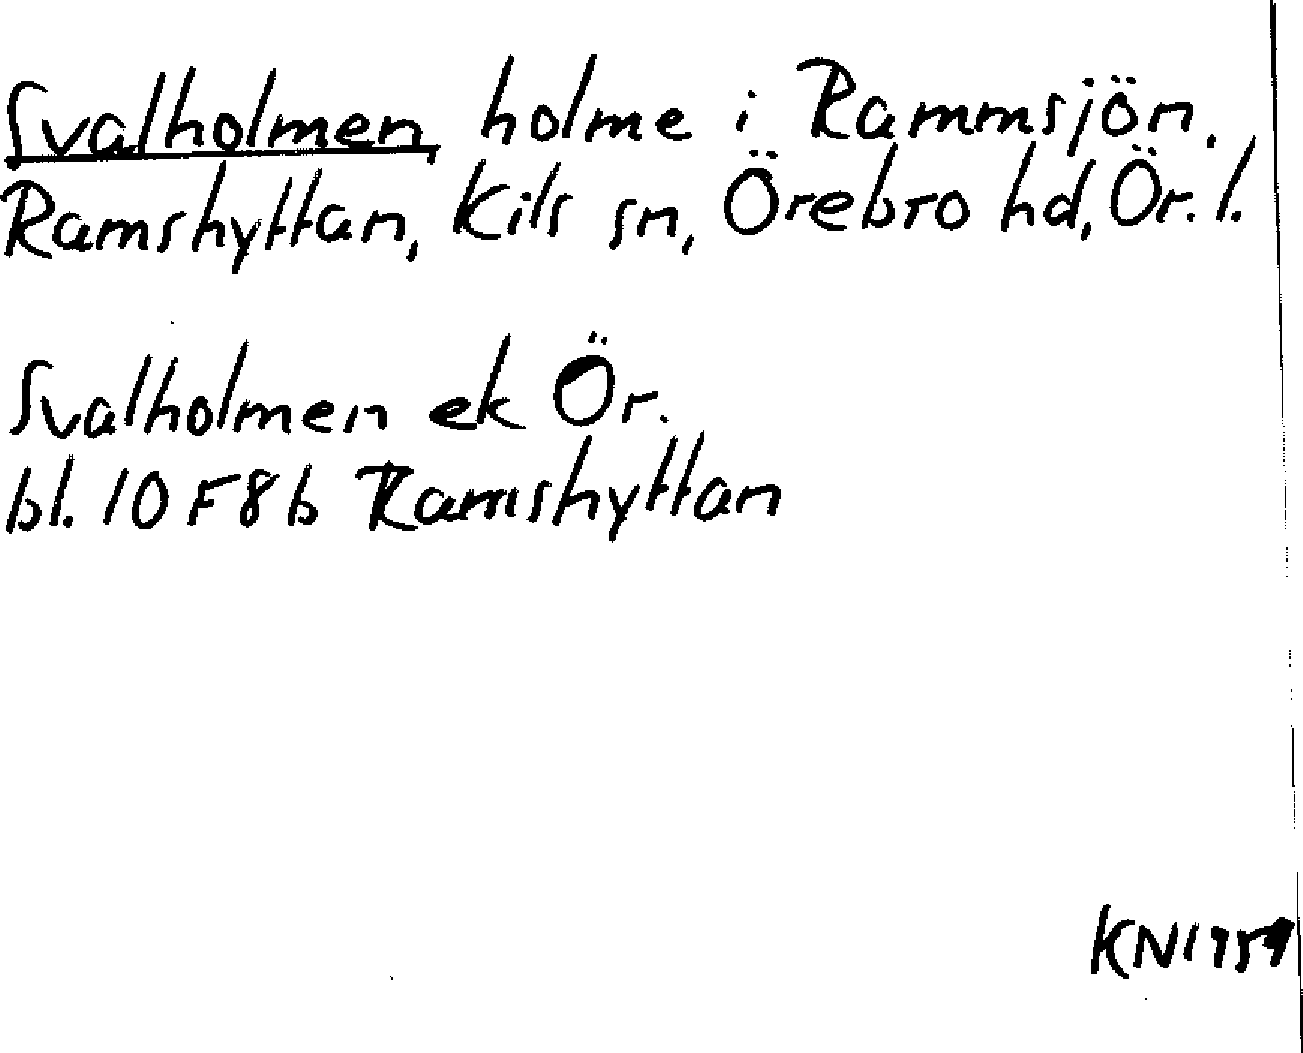 Svalholmen, holme i Rammsjön.
Ramshyttan, Kils sn, Örebro hd, Ör. l.
Svalholmen ek Ör.
bl. 10 F 8 b Ramshyttan
KN 1959